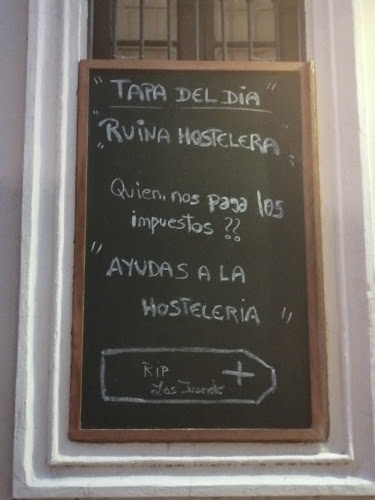 "TAPA DEL DIA"
"RUINA HOSTELERA"
Quien, nos paga los
impuestos ??
"AYUDAS A LA
HOSTELERIA"
RIP
Los